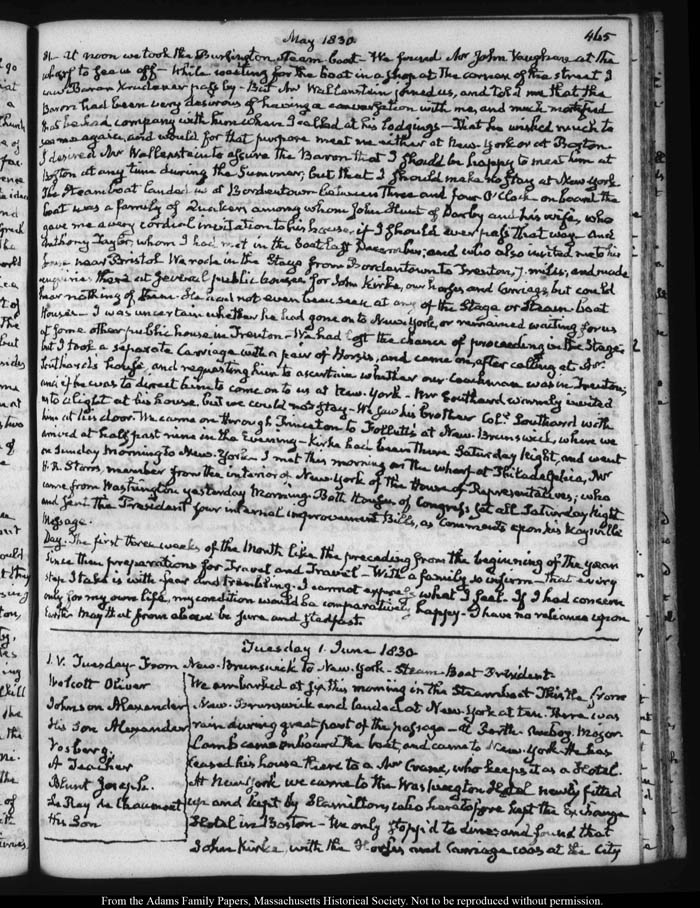 May 1830.
465
31. At noon we took the Burlington Steam boat - We found Mr John Vaughan at the
wharf to see us off - While waiting for the boat in a shop at the corner of the street I
saw Baron Krudener pass by - But Mr Wallenstein joined us, and told me that the
Baron had been very desirous of having a conversation with me, and much mortified
that he had company with him when I called at his lodgings - That he wished much to
see me again, and would for that purpose meet me either at New-York or at Boston.
I desired Mr Wallenstein to assure the Baron that I should be happy to meet him at
Boston at any time during the Summer, but that I should make no stay at New York
The Steamboat landed us at Bordentown between three and four O'Clock - on board the
boat was a family of Quakers among whom John Hunt of Darby and his wife, who
gave me a very cordial invitation to his house, if I should ever pass that way - And
Anthony Taylor, whom I had met in the boat last December; and who also invited me to his
house near Bristol We rode in the Stage from Bordentown to Trenton, 7. miles, and made
enquiries there at several public houses for John Kirke, our horses and Carriage, but could
hear nothing of them. He had not even been seen at any of the Stage or Steam-boat
Houses - I was uncertain whether he had gone on to New York, or remained waiting for us
at some other public house in Trenton - We had lost the chance of proceeding in the Stage
but I took a separate Carriage with a pair of Horses, and came on, after calling at Mr
Southard's house, and requesting him to ascertain whether our Coachman was in Trenton;
and if he was to direct him to come on to us at New-York. Mr Southard warmly invited
us to alight at his house, but we could not stay - We saw his brother Coll. Southard with
him at his door. We came on through Princeton to Follett's at New-Brunswick, where we
arrived at half past nine in the Evening - Kirke had been there Saturday Night, and went
on Sunday Morning to New-York. I met this morning on the wharf at Philadelphia, Mr
H. R. Storrs, member from the interior of New-York of the House of Representatives; who
came from Washington yesterday Morning. Both Houses of Congress sat all Saturday Night
and sent the President four internal improvement Bills, as Comments upon his Maysville
Message.
Day. The first three weeks of the Month like the preceding from the beginning of the year
Since then preparations for Travel and Travel - With a family so infirm - that every
step I take is with fear and trembling - I cannot express what I feel - If I had concern
only for my own life, my condition would be comparatively happy - I have no reliance upon
Earth - May that from above be sure and stedfast.
Tuesday 1. June 1830.
1. V. Tuesday - From New-Brunswick to New-York - Steam-Boat President
Wolcott Oliver
Johnson Alexander
His Son Alexander
Vosberg.
A Teacher
Blunt Joseph.
Le Ray de Chaumont
His Son
We embarked at six this morning in the Steamboat Thistle from
New-Brunswick and landed at New-York at ten. There was
rain during great part of the passage - at Perth-Amboy Major
Lomb came on board the boat, and came to New-York He has
leased his house there to a Mr Crane, who keeps it as a Hotel.
At New York we came to the Washington Hotel newly fitted
up and kept by Hamilton, who heretofore kept the Exchange
Hotel in Boston - We only stopp'd to dine; and found that
John Kirke, with the Horses and Carriage was at the City
From the Adams Family Papers, Massachusetts Historical Society. Not to be reproduced without permission.